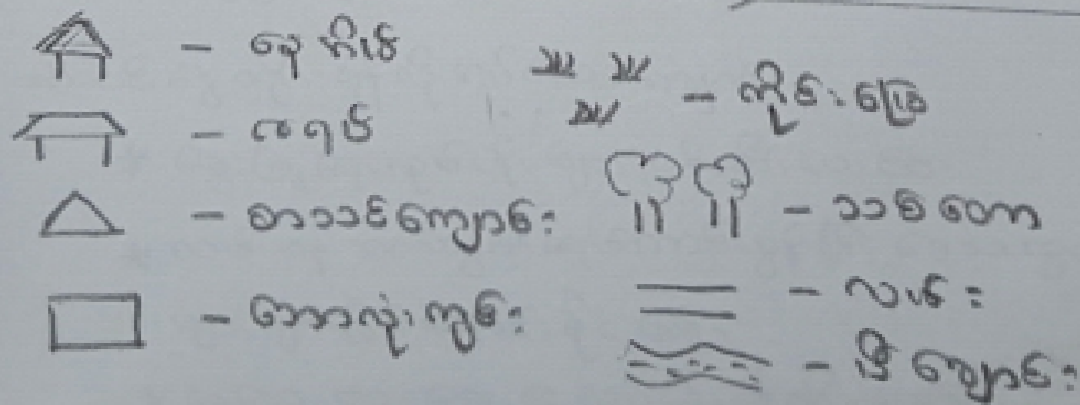 - နေအိမ်
- ဇရပ်
- စာသင်ကျောင်း
- ဘောလုံးကွင်း
- ကိုင်းမြေ
- သစ်တော
- လမ်း
- မြစ်ချောင်း